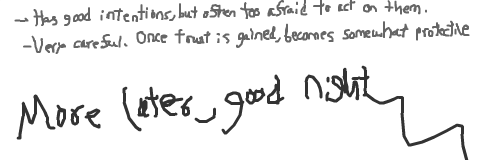 → Has good intentions, but often too afraid to act on them.
-Very careful. Once trust is gained, becomes somewhat protective
More later, good night